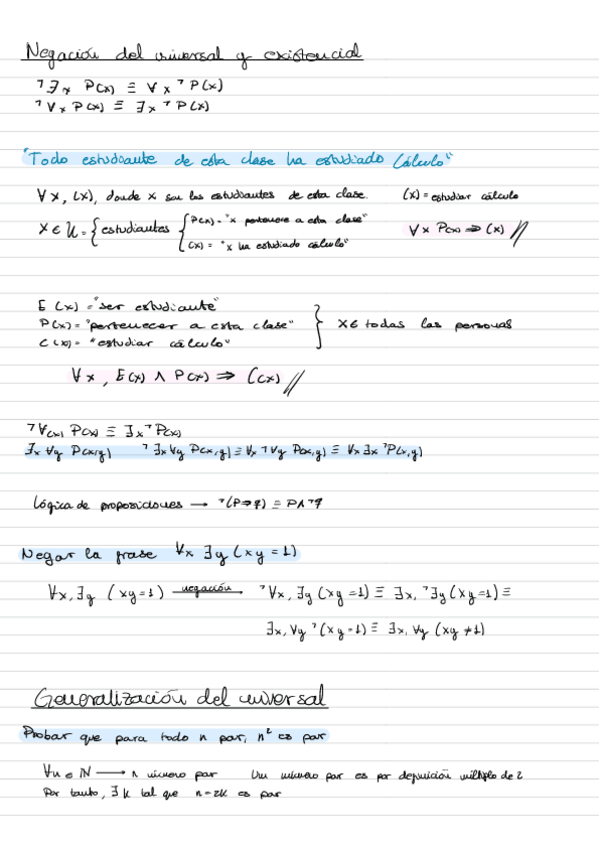 Negación del universal y existencial
¬∃x P(x) ≡ ∀x ¬P(x)
¬∀x P(x) ≡ ∃x ¬P(x)
"Todo estudiante de esta clase ha estudiado Cálculo"
∀x, C(x), donde x son los estudiantes de esta clase. C(x) = estudiar cálculo
x ∈ U = { estudiantes { P(x) = "x pertenece a esta clase"
C(x) = "x ha estudiado cálculo"
∀x P(x) ⇒ C(x) //
E(x) = "ser estudiante"
P(x) = "pertenecer a esta clase" } x ∈ todas las personas
C(x) = "estudiar cálculo"
∀x, E(x) ∧ P(x) ⇒ C(x) //
¬∀(x) P(x) ≡ ∃x ¬P(x)
∃x ∀y P(x,y) ¬∃x ∀y P(x,y) ≡ ∀x ¬∀y P(x,y) ≡ ∀x ∃x ¬P(x,y)
Lógica de proposiciones → ¬(P⇒q) ≡ P∧¬q
Negar la frase ∀x ∃y (xy = 1)
∀x, ∃y (xy=1) negación → ¬∀x, ∃y (xy=1) ≡ ∃x, ¬∃y (xy=1) ≡
∃x, ∀y ¬(xy=1) ≡ ∃x, ∀y (xy ≠ 1)
Generalización del universal
Probar que para todo n par, n² es par
∀n ∈ N → n número par Un número par es por definición múltiplo de 2
Por tanto, ∃ k tal que n=2k es par